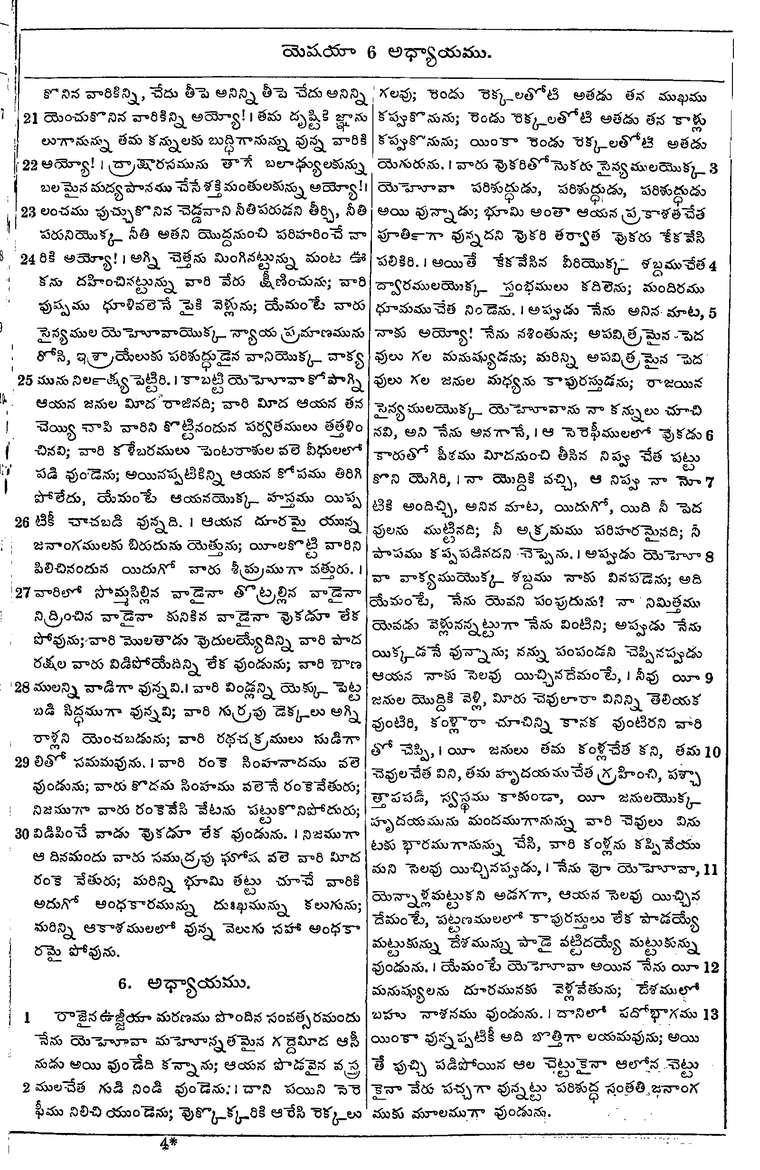 యెషయా 6 అధ్యాయము.
కొనిన వారికిన్ని, చేదు తీపె అనిన్ని తీపె చేదు అనిన్ని
21 యెంచుకొనిన వారికిన్ని అయ్యో! । తమ దృష్టికి జ్ఞాను
లుగానున్ను తమ కన్నులకు బుద్ధిగానున్ను వున్న వారికి
22 అయ్యో! । ద్రాక్షారసమును తాగే బలాఢ్యులకున్ను
బలమైన మద్యపానము చేసే శక్తిమంతులకున్ను అయ్యో!।
23 లంచము పుచ్చుకొనిన చెడ్డవాని నీతిపరుడని తీర్చి, నీతి
పరునియొక్క నీతి అతని యొద్దనుంచి పరిహరించే వా
24 రికి అయ్యో! । అగ్ని చెత్తను మింగినట్టున్ను మంట ఊ
కను దహించినట్టున్ను వారి వేరు క్షీణించును; వారి
పుష్పము ధూళివలెనే పైకి వెళ్లును; యేమంటే వారు
సైన్యముల యెహోవాయొక్క న్యాయ ప్రమాణమును
రోసి, ఇశ్రాయేలుకు పరిశుద్ధుడైన వానియొక్క వాక్య
25 మును నిలర్క్ష్యపెట్టిరి. । కాబట్టి యెహోవా కోపాగ్ని
ఆయన జనుల మీద రాజినది; వారి మీద ఆయన తన
చెయ్యి చాపి వారిని కొట్టినందున పర్వతములు తత్తళిం
చినవి; వారి కళేబరములు పెంటరాశుల వలె వీధులలో
పడి వుండెను; అయినప్పటికిన్ని ఆయన కోపము తిరిగి
పోలేదు, యేమంటే ఆయనయొక్క హస్తము యిప్ప
26 టికీ చాచబడి వున్నది. । ఆయన దూరమై యున్న
జనాంగములకు బిరుదును యెత్తును; యీలకొట్టి వారిని
పిలిచినందున యిదుగో వారు శీఘ్రముగా వత్తురు. ।
27 వారిలో సొమ్మసిల్లిన వాడైనా తొట్రల్లిన వాడైనా
నిద్రించిన వాడైనా కునికిన వాడైనా వొకడూ లేక
పోవును; వారి మొలతాడు వొదులయ్యేదిన్ని వారి పాద
రక్షల వారు విడిపోయేదిన్ని లేక వుండును; వారి బాణ
28 ములన్ని వాడిగా వున్నవి. । వారి విండ్లన్ని యెక్కు పెట్ట
బడి సిద్ధముగా వున్నవి; వారి గుర్రపు డెక్కలు అగ్ని
రాళ్లని యెంచబడును; వారి రథచక్రములు సుడిగా
29 లితో సమమవును. । వారి రంకె సింహనాదము వలె
వుండును; వారు కొదమ సింహము వలెనే రంకెవేతురు;
నిజముగా వారు రంకెవేసి వేటను పట్టుకొనిపోదురు;
30 విడిపించే వాడు వొకడూ లేక వుండును. । నిజముగా
ఆ దినమందు వారు సముద్రపు ఘోష వలె వారి మీద
రంకె వేతురు; మరిన్ని భూమి తట్టు చూచే వారికి
అదుగో అంధకారమున్ను దుఃఖమున్ను కలుగును;
మరిన్ని ఆకాశములలో వున్న వెలుగు సహా అంధకా
రమై పోవును.
6. అధ్యాయము.
1 రాజైన ఉజ్జీయా మరణము పొందిన సంవత్సరమందు
నేను యెహోవా మహోన్నతమైన గద్దెమీద ఆసీ
నుడు అయి వుండేది కన్నాను; ఆయన పొడవైన వస్త్ర
2 ములచేత గుడి నిండి వుండెను. । దాని పయిని సెరె
ఫీము నిలిచి యుండెను; వొక్కొక్కరికి ఆరేసి రెక్కలు
గలవు; రెండు రెక్కలతోటి అతడు తన ముఖము
కప్పుకొనును; రెండు రెక్కలతోటి అతడు తన కాళ్లు
కప్పుకొనును; యింకా రెండు రెక్కలతోటి అతడు
యెగురును. । వారు వొకరితో నొకరు సైన్యములయొక్క 3
యెహోవా పరిశుద్ధుడు, పరిశుద్ధుడు, పరిశుద్ధుడు
అయి వున్నాడు; భూమి అంతా ఆయన ప్రకాశతచేత
పూర్తిగా వున్నదని వొకరి తర్వాత వొకరు కేకవేసి
పలికిరి. । అయితే కేకవేసిన వీరియొక్క శబ్దముచేత 4
ద్వారములయొక్క స్తంభములు కదిలెను; మందిరము
ధూమముచేత నిండెను. । అప్పుడు నేను అనిన మాట, 5
నాకు అయ్యో! నేను నశింతును; అపవిత్రమైన పెద
వులు గల మనుష్యుడను; మరిన్ని అపవిత్రమైన పెద
వులు గల జనుల మధ్యను కాపురస్తుడను; రాజయిన
సైన్యములయొక్క యెహోవాను నా కన్నులు చూచి
నవి, అని నేను అనగానే, । ఆ సెరెఫీములలో వొకడు 6
కారుతో పీఠము మీదనుంచి తీసిన నిప్పు చేత పట్టు
కొని యెగిరి, । నా యొద్దికి వచ్చి, ఆ నిప్పు నా నో 7
టికి అందిచ్చి, అనిన మాట, యిదుగో, యిది నీ పెద
వులను ముట్టినది; నీ అక్రమము పరిహరమైనది; నీ
పాపము కప్పపడినదని చెప్పెను. । అప్పుడు యెహో 8
వా వాక్యముయొక్క శబ్దము నాకు వినపడెను; అది
యేమంటే, నేను యెవని పంపుదును? నా నిమిత్తము
యెవడు వెళ్లునన్నట్టుగా నేను వింటిని; అప్పుడు నేను
యిక్కడనే వున్నాను; నన్ను పంపండని చెప్పినప్పుడు
ఆయన నాకు సెలవు యిచ్చినదేమంటే, । నీవు యీ 9
జనుల యొద్దికి వెళ్లి, మీరు చెవులారా వినిన్ని తెలియక
వుంటిరి, కంళ్లారా చూచిన్ని కానక వుంటిరని వారి
తో చెప్పి, । యీ జనులు తమ కంళ్లచేత కని, తమ 10
చెవులచేత విని, తమ హృదయముచేత గ్రహించి, పశ్చా
త్తాపపడి, స్వస్థము కాకుండా, యీ జనులయొక్క
హృదయమును మందముగానున్ను వారి చెవులు విను
టకు భారముగానున్ను చేసి, వారి కంళ్లను కప్పివేయు
మని సెలవు యిచ్చినప్పుడు, । నేను వో యెహోవా, 11
యెన్నాళ్లమట్టుకని అడగగా, ఆయన సెలవు యిచ్చిన
దేమంటే, పట్టణములలో కాపురస్తులు లేక పాడయ్యే
మట్టుకున్ను దేశమున్ను పాడై వట్టిదయ్యే మట్టుకున్ను
వుండును. । యేమంటే యెహోవా అయిన నేను యీ 12
మనుష్యులను దూరమునకు వెళ్లవేతును; దేశములో
బహు నాశనము వుండును. । దానిలో పదోభాగము 13
యింకా వున్నప్పటికీ అది బొత్తిగా లయమవును; అయి
తే పుచ్చి పడిపోయిన ఆల చెట్టుకైనా ఆలోన చెట్టు
కైనా వేరు పచ్చగా వున్నట్టు పరిశుద్ధ సంతతి జనాంగ
ముకు మూలముగా వుండును.
4*